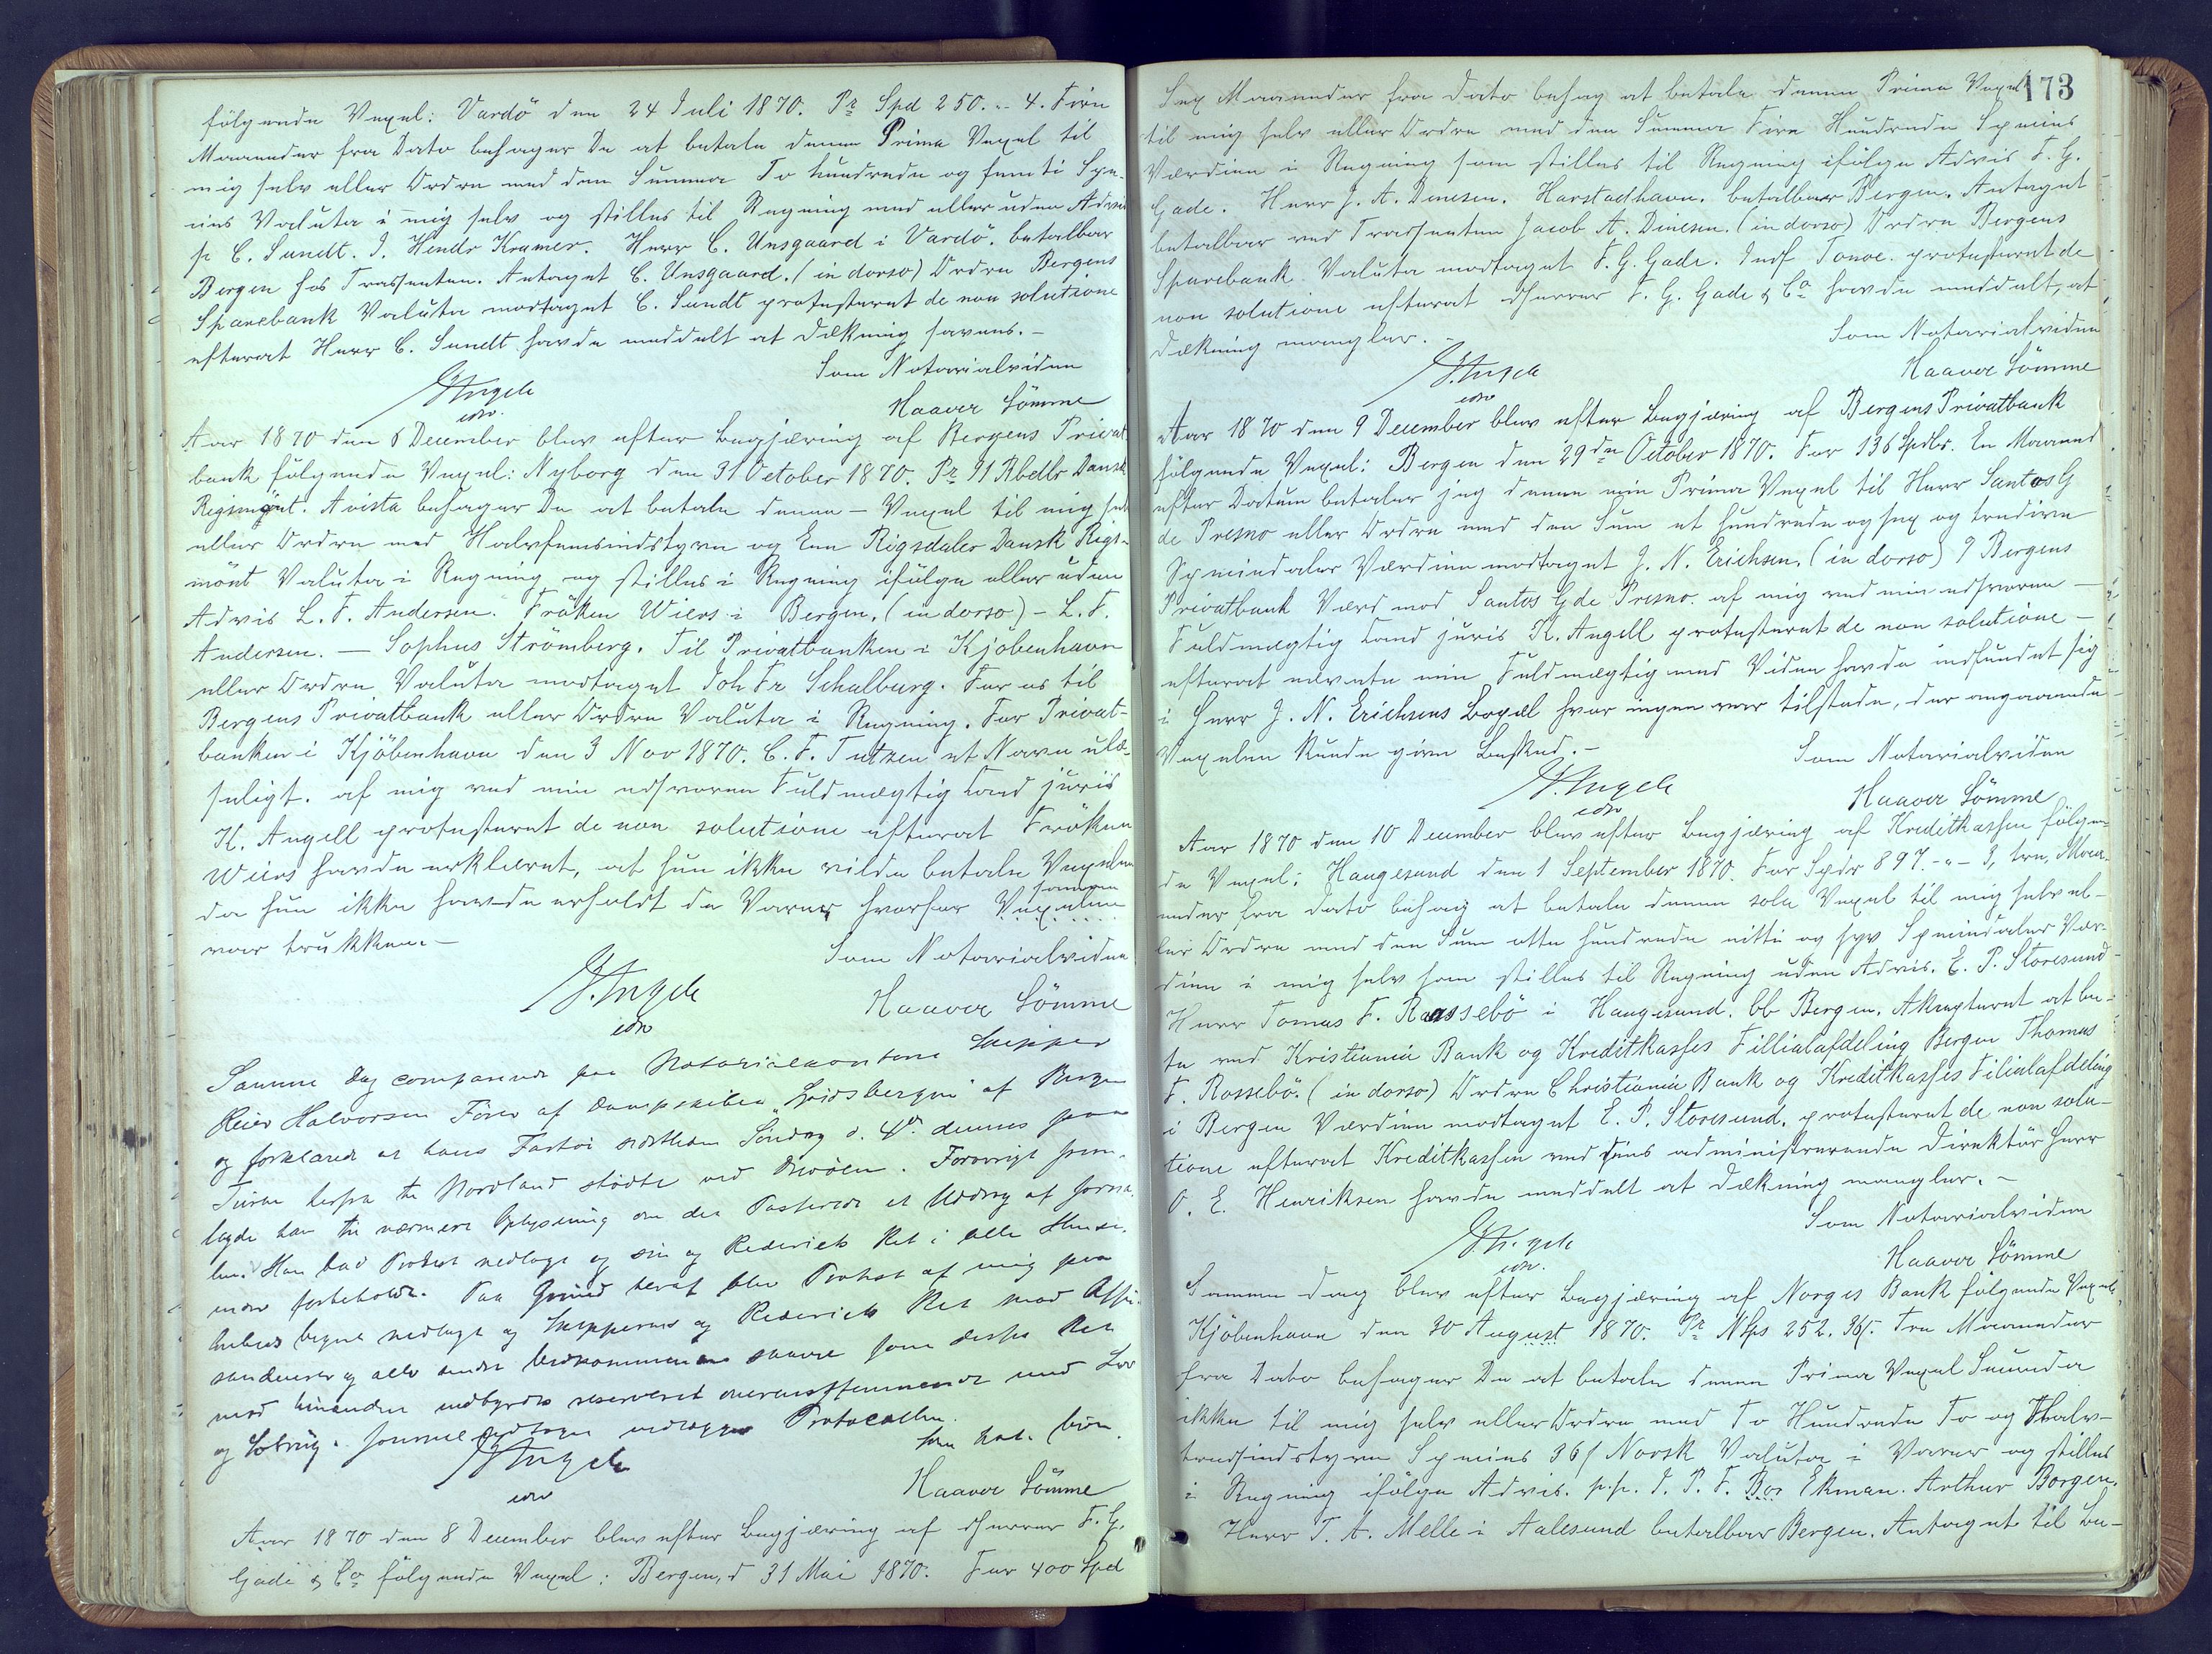 følgende Vexel: Vardö den 24 Juli 1870. Pr Spd 250. - 4. Fire
Maaneder fra Dato behager De at betale denne Prima Vexel til
mig selv eller Ordre med den Summa To hundrede og femti Spe-
cies Valuta i mig selv og stilles til Regning med eller uden Advis
p C. Sundt. J. Hendr Kramer. Herr C. Unsgaard i Vardö. betalbar
Bergen hos Trassenten. Antaget C. Unsgaard. (in dorso) Ordre Bergens
Sparebank Valuta modtaget C. Sundt protesteret de non solutione
efterat Herr C. Sundt havde meddelt at Dækning savnes.-
Som Notarialvidne
Haaver Sömme
Aar 1870 den 6 December blev efter Begjæring af Bergens Privat
bank følgende Vexel: Nyborg den 31 October 1870. Pr 91 Rbdlr Dansk
Rigsmönt. A vista behager De at betale denne - Vexel til mig selv
eller Ordre med Halvfemsindstyve og Een Rigsdaler Dansk Rigs-
mönt Valuta i Regning og stilles i Regning ifølge eller uden
Advis L. F. Andersen. Fröken Wiers i Bergen. (in dorso) - L. F.
Andersen. - Sophus Strömberg. Til Privatbanken i Kjöbenhavn
eller Ordre Valuta modtaget Joh Fr Schalburg. For os til
Bergens Privatbank eller Ordre Valuta i Regning. For Privat-
banken i Kjöbenhavn den 3 Nov 1870. C. F. Tutzen et Navn ulæ-
seligt. af mig ved min edsvorne Fuldmægtig Cand juris
K. Angell protesteret de non solutione efterat Fröken
Wiers havde erklæret, at hun ikke vilde betale Vexelen
da hun ikke havde erholdt de Varer hvorfor Vexelen
var trukken.-
Som Notarialvidne
Haaver Sömme
Samme Dag comparerede paa Notarialcontoret Skipper
Reier Halvorsen Fører af Dampskibet
og forklarede at hans Fartøi sidstleden Søndag d. 4de dennes paa
Turen herfra til Nordland stødte ved . Forøvrigt frem-
lagde han til nærmere Oplysning om det Passerede et Uddrag af Journa
len. Han bad Protest nedlagt og sin og Rederiets Ret i alle Hensee-
ender forbeholdt. Paa Grund heraf blev Protest af mig paa
behørig nedlagt og Skipperens og Rederiets Ret mod Assu-
randeurer og alle andre Vedkommende saavel som disses Ret
mod hinanden indbyrdes reserveret overensstemmende med Lov
og Sedvane. Journaludtoget vedlægges Protocollen.
Som Not. vidne
Haaver Sömme
Aar 1870 den 8 December blev efter Begjæring af Herrer F. G.
Gade & Co følgende Vexel: Bergen, d 31 Mai 1870. For 400 Spd
173
Sex Maaneder fra Dato behag at betale denne Prima Vexel
til mig selv eller Ordre med den Summa Fire Hundrede Species
Værdien i Regning som stilles til Regning ifølge Advis F. G.
Gade. Herr J. A. Dinesen. Harstadhavn. betalbar Bergen. Antaget
betalbar ved Trassenten Jacob A. Dinesen. (in dorso) Ordre Bergens
Sparebank Valuta modtaget F. G. Gade. Indf Tonoe. protesteret de
non solutione efterat Herrer F. G. Gade & Co havde meddelt, at
Dækning mangler.-
Som Notarialvidne
Haaver Sömme
Aar 1870 den 9 December blev efter Begjæring af Bergens Privatbank
følgende Vexel: Bergen den 29de October 1870. For 136 Spdlr. En Maaned
efter Datum betaler jeg denne min Prima Vexel til Herr Santos G
de Presno eller Ordre med den Sum et hundrede og sex og tredive
Speciedaler Værdien modtaget J. N. Erichsen. (in dorso) Bergens
Privatbank Værd mod Santos G de Presno. af mig ved min edsvorne
Fuldmægtig Cand juris K. Angell protesteret de non solutione -
efterat nævnte min Fuldmægtig med Vidne havde indfundet sig
i Herr J. N. Erichsens Bopæl hvor ingen var tilstede, der angaaende
Vexelen kunde give Besked.-
Som Notarialvidne
Haaver Sömme
Aar 1870 den 10 December blev efter Begjæring af Kreditkassen følgen-
de Vexel: Haugesund den 1 September 1870. For Spdr 897.-"- 3, tre, Maa-
neder fra Dato behag at betale denne sola Vexel til mig selv el-
ler Ordre med den Sum otte hundrede nitti og syv Speciedaler Vær-
dien i mig selv som stilles til Regning uden Advis. E. P. Storesund
Herr Tomas F. Rossebö i Haugesund. bb Bergen. Akcepteret at be-
ta ved Kristiania Bank og Kreditkasses Fillialafdeling Bergen Thomas
F. Rossebö. (in dorso) Ordre Christiania Bank og Kreditkasses Filialafdeling
i Bergen Værdien modtaget E. P. Storesund. protesteret de non solu-
tione efterat Kreditkassen ved dens administrerende Direktör Herr
O. E. Henriksen havde meddelt at Dækning mangler.-
Som Notarialvidne
Haaver Sömme
Samme Dag blev efter Begjæring af Norges Bank følgende Vexel:
Kjöbenhavn den 30 August 1870. Pr NSps 252. 36s. Tre Maaneder
fra Dato behager De at betale denne Prima Vexel Secunda
ikke til mig selv eller Ordre med To Hundrede To og Halv-
tredsindstyve Species 36s Norsk Valuta i Varer og stilles
i Regning ifølge Advis. p.p. J. P. F. Bor Ekman. Arthur Borgen.
Herr T. A. Melle i Aalesund betalbar Bergen. Antaget til Be-